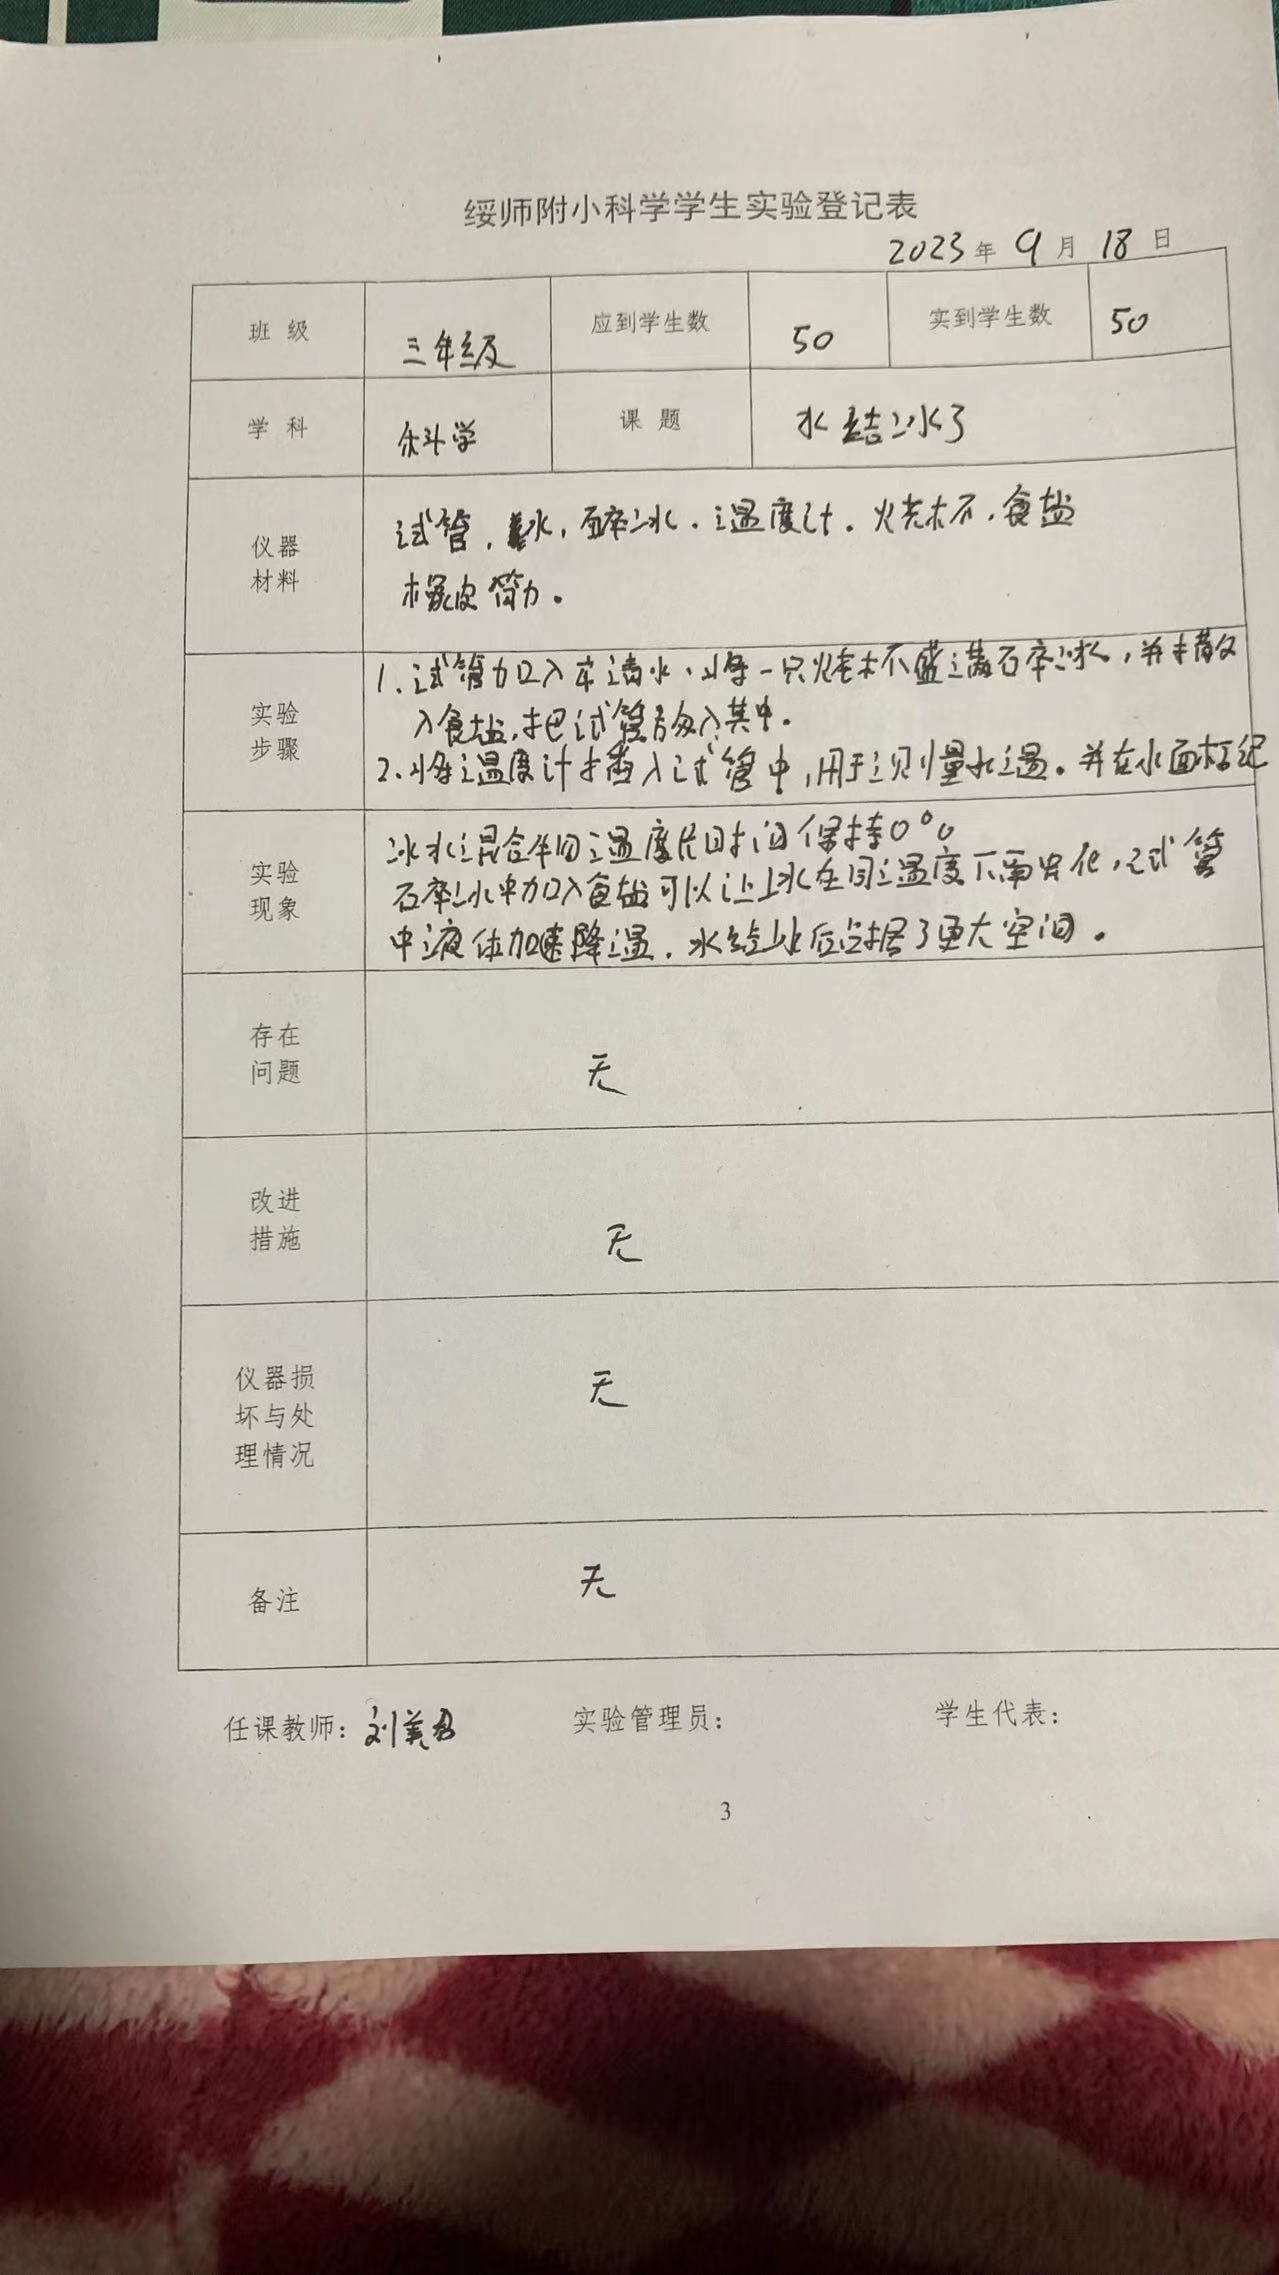 绥师附小科学学生实验登记表
2023年9月18日
班 级 三年级 应到学生数 50 实到学生数 50
学 科 科学 课 题 水结冰了
仪器
材料
试管,水,碎冰.温度计.烧杯.食盐
橡皮筋。
实验
步骤
1.试管加入清水.将一只烧杯盛满碎冰,并撒
入食盐,把试管放入其中.
2.将温度计插入试管中,用于测量水温。并在水面标记
实验
现象
冰水混合物温度长时间保持0°
碎冰中加入食盐可以让冰在同温度下融化,试管
中液体加速降温.水结冰后占据了更大空间.
存在
问题
无
改进
措施
无
仪器损
坏与处
理情况
无
备注
无
任课教师: 刘美 实验管理员: 学生代表:
3